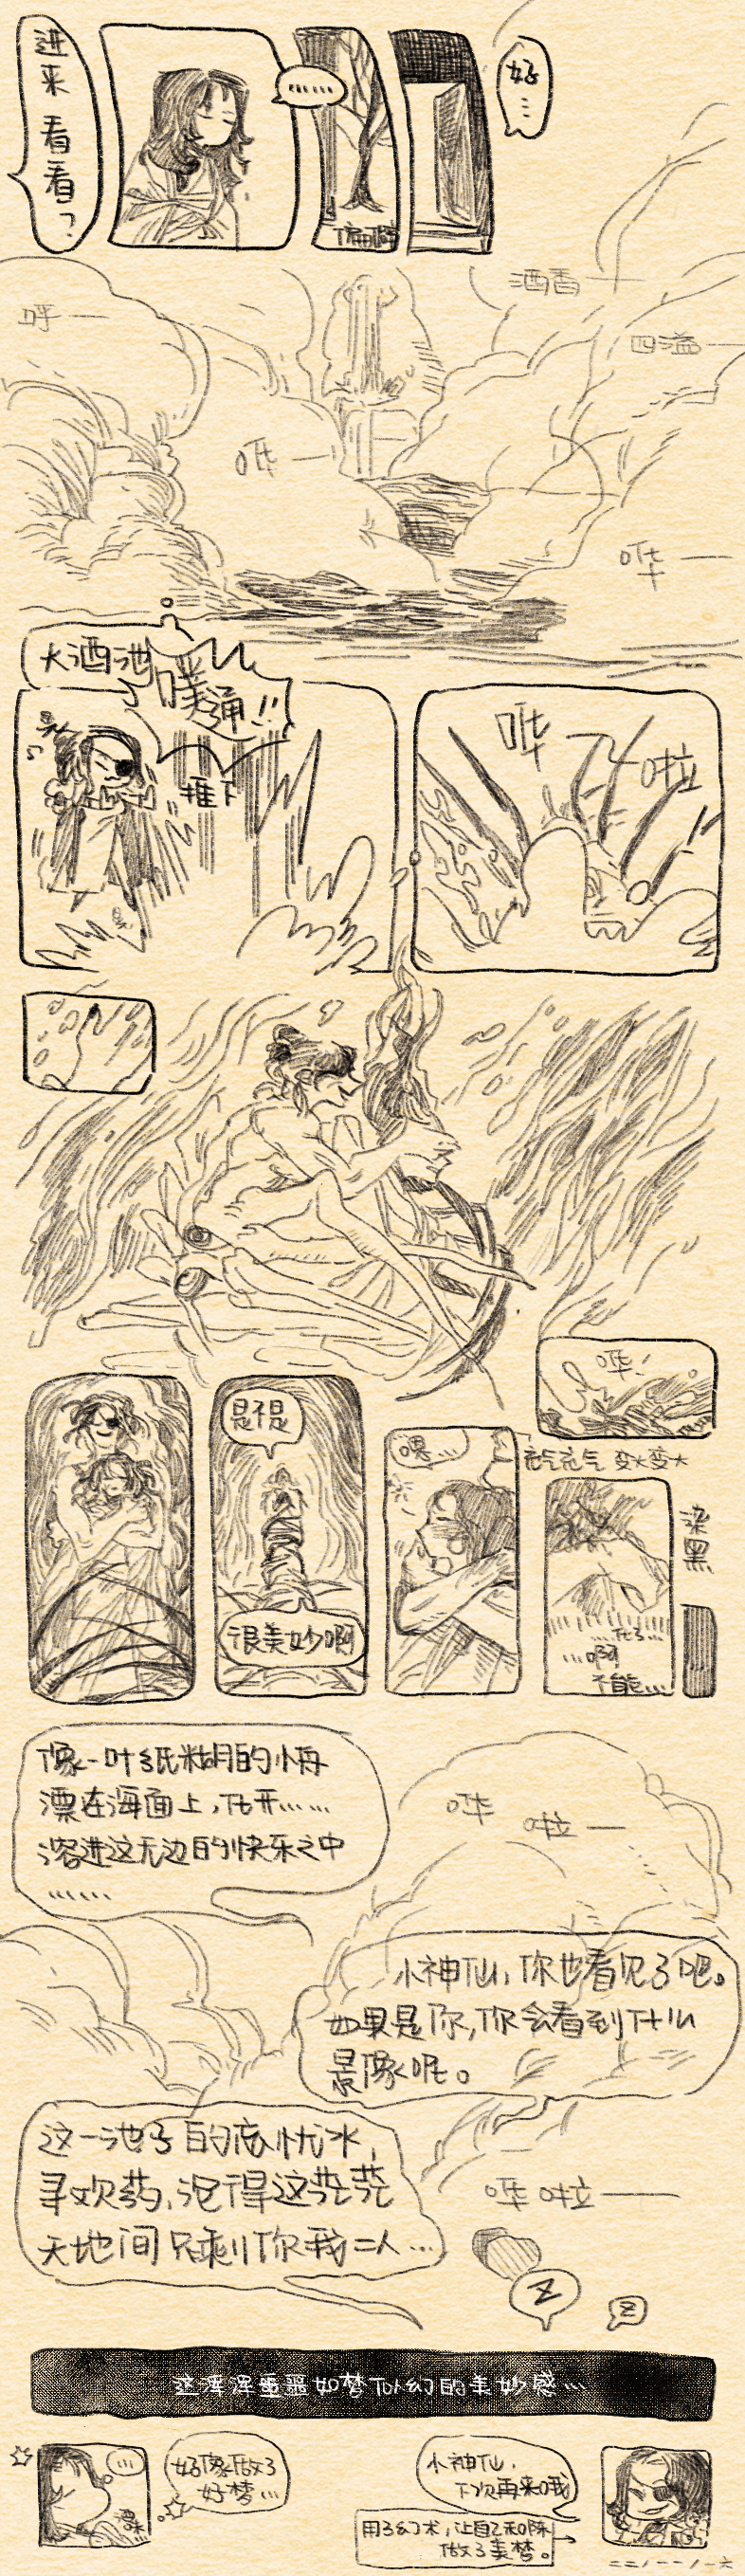 进来看看？
……
好…
偏頭
酒香——
四溢——
呼——
哗——
哗——
大酒池
噗通!!
推下
哗
啦
哗!
是不是
很美妙啊
嘿…
充气充气 变大变大
染黑
…啊
不能…
像一叶纸糊的小舟
漂在海面上，化开……
溶进这无边的快乐之中
……
哗 啦——
小神仙，你也看见了吧。
如果是你，你会看到什么
景像呢。
这一池子的忘忧水，
寻欢药，混得这茫茫
天地间只剩你我二人…
哗啦——
Z
Z
这浑浑噩噩如梦似幻的美妙感…
…
好像做了
好梦…
小神仙，
下次再来哦
用了幻术，让自己和陈
做了美梦。